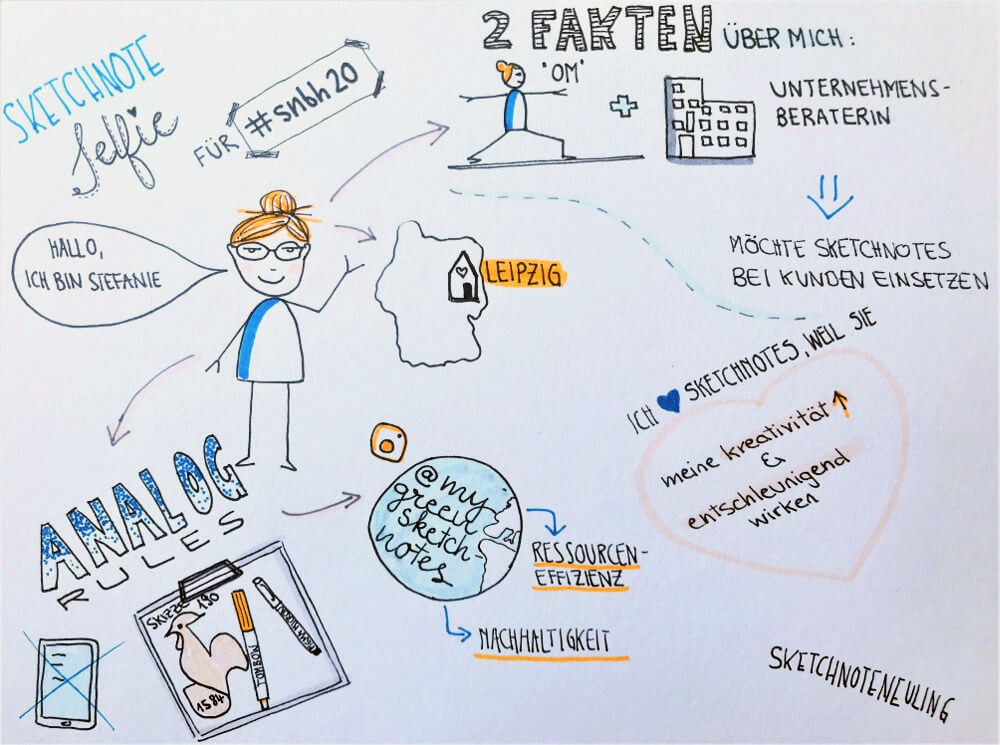 SKETCHNOTE
Selfie
FÜR #snbh20
2 FAKTEN ÜBER MICH:
'OM'
+
UNTERNEHMENS-
BERATERIN
MÖCHTE SKETCHNOTES
BEI KUNDEN EINSETZEN
HALLO,
ICH BIN STEFANIE
LEIPZIG
ICH ♥ SKETCHNOTES, WEIL SIE
meine kreativität ↑
&
entschleunigend
wirken
ANALOG
RULES
@my
green
sketch-
notes
RESSOURCEN-
EFFIZIENZ
NACHHALTIGKEIT
Skizze 190
1584
TOMBOW
SKETCHNOTENEULING